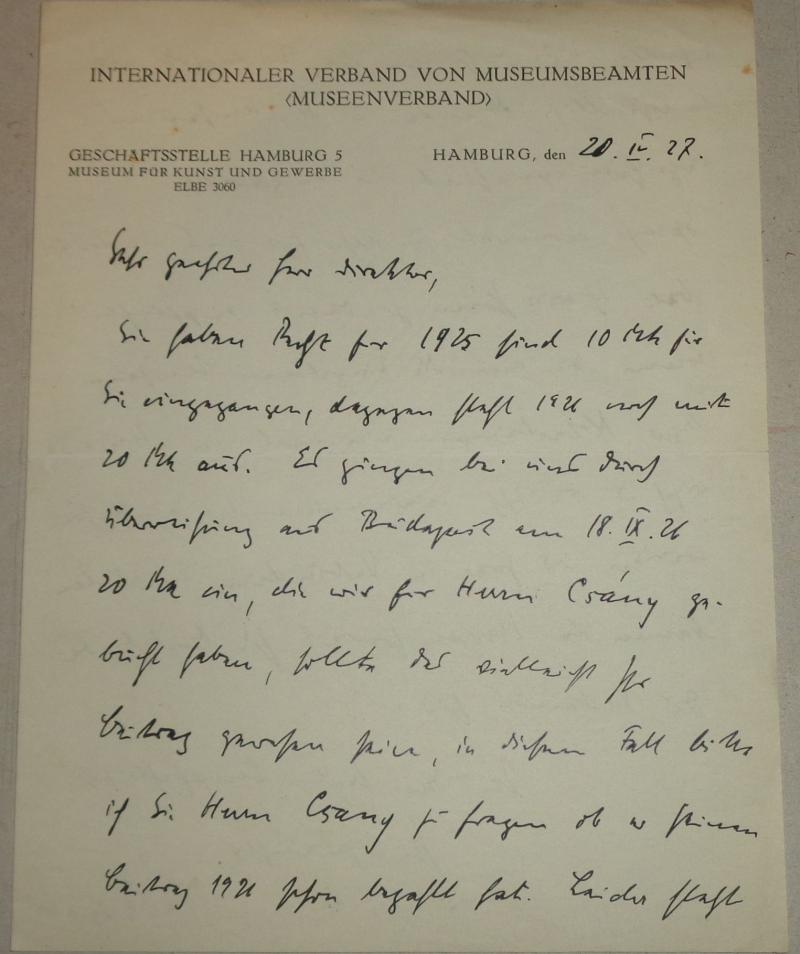 INTERNATIONALER VERBAND VON MUSEUMSBEAMTEN
<MUSEENVERBAND>
GESCHÄFTSSTELLE HAMBURG 5
MUSEUM FÜR KUNST UND GEWERBE
ELBE 3060
HAMBURG, den 20. IV. 27.
Sehr geehrter Herr Direktor,
Sie haben Recht für 1925 sind 10 Mk für
Sie eingegangen, dagegen steht 1926 noch mit
20 Mk aus. Es gingen bei uns durch
Überweisung aus Budapest am 18. IX. 26
20 Mk ein, die wir für Herrn Csány ge-
bucht haben, sollte das vielleicht Ihr
Beitrag gewesen sein, in diesem Fall bitte
ich Sie Herrn Csány zu fragen ob er seinen
Beitrag 1926 schon bezahlt hat. Leider steht